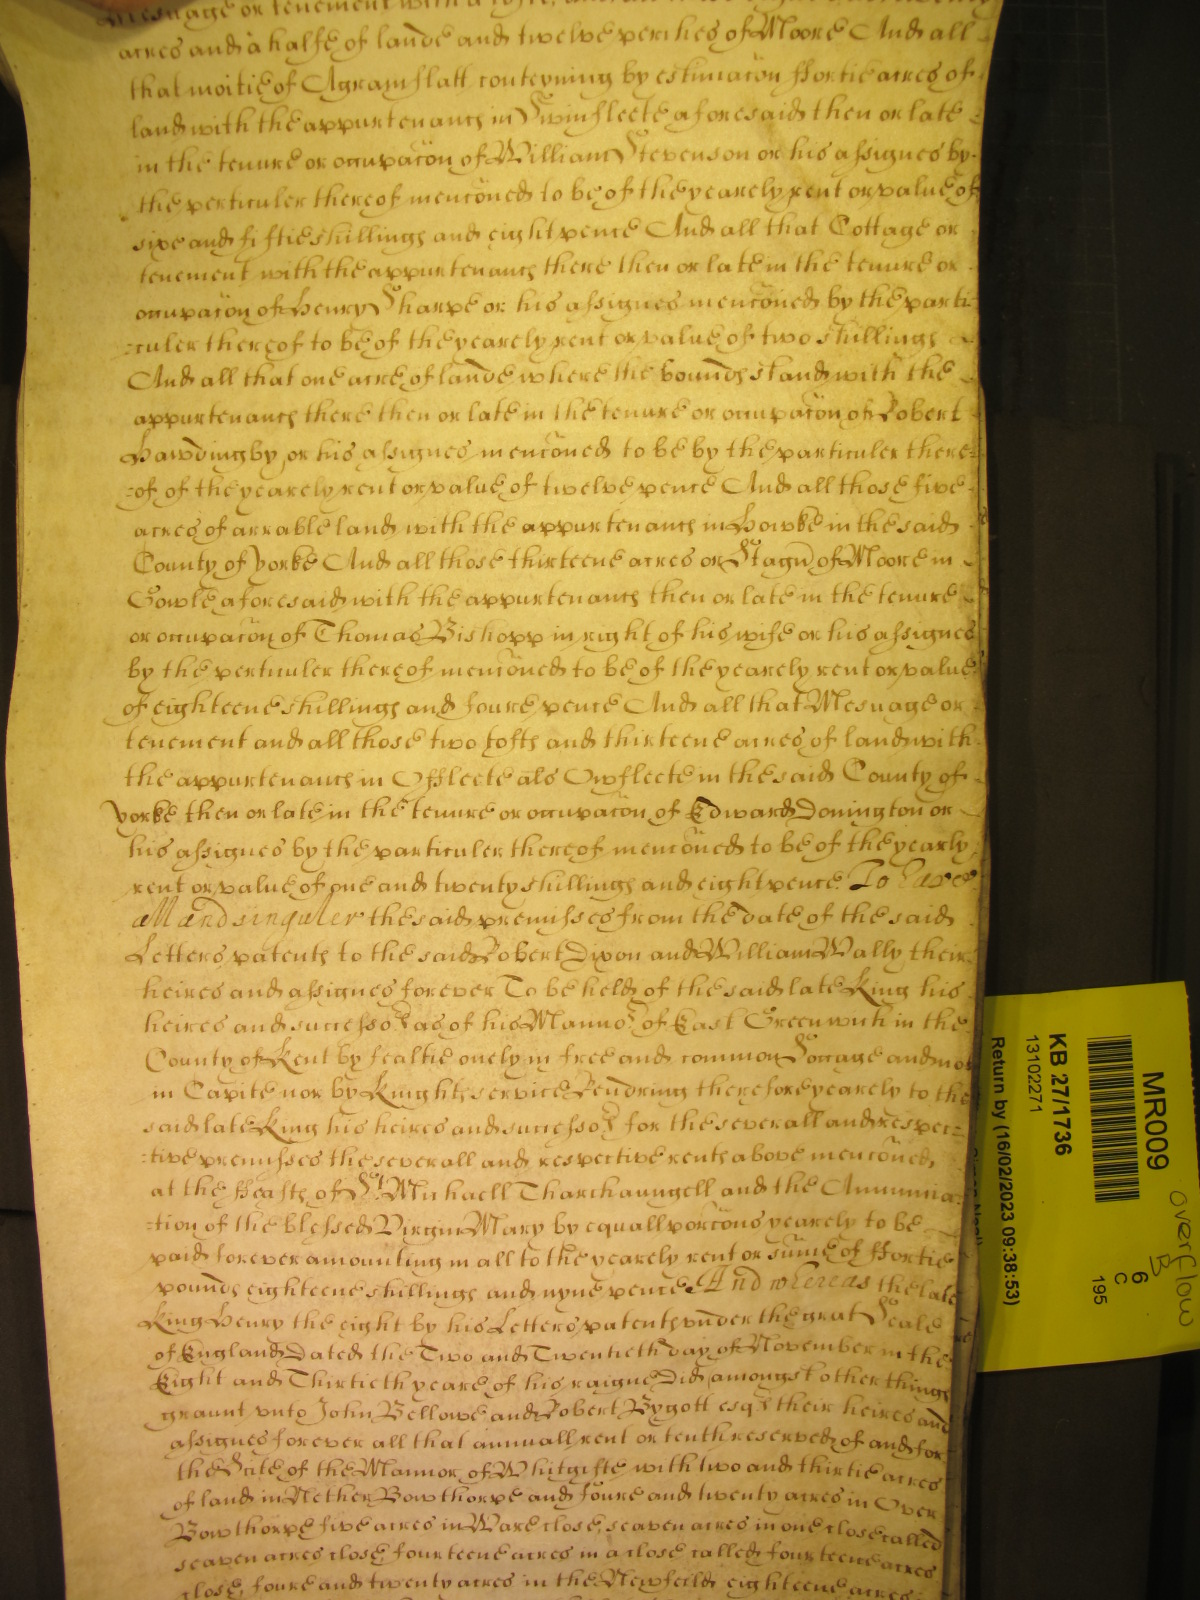 Mesuage or tenement with a
acres and a halfe of lande and twelve perches of Moore And all
that moitie of Agramflatt conteyning by estimacõn ffortie acres of
land with the appurtenancs in Swinfleete aforesaid then or late
in the tenure or occupacõn of William Stevenson or his assignes by
the perticuler thereof mencõned to be of the yearely rent or value of
sixe and fiftie shillings and eight pence And all that Cottage or
tenement with the appurtenancs there then or late in the tenure or
occupacõn of Henry Sharpe or his assignes mencõned by the parti-
=culer thereof to be of the yearely rent or value of two shillings
And all that one acre of lande where the bounds stand with the
appurtenancs there then or late in the tenure or occupacõn of Robert
Hawdingby or his assignes mencõned to be by the particuler there=
=of of the yearely rent or value of twelve pence And all those five
acres of arrable land with the appurtenancs in Howke in the said
County of Yorke And all those thirteene acres or Stagñ of Moore in
Gowle aforesaid with the appurtenancs then or late in the tenure
or occupacõn of Thomas Bishopp in right of his wife or his assignes
by the perticuler thereof mencõned to be of the yearely rent or value
of eighteene shillings and foure pence And all that Mesuage or
tenement and all those two tofts and thirteene acres of land with
the appurtenancs in Offleete als Owsfleete in the said County of
Yorke then or late in the tenure or occupacõn of Edward Donington or
his assignes by the particuler thereof mencõned to be of the yearly
rent or value of one and twenty shillings and eight pence To have
all and singuler the said premisses from the date of the said
Letters patents to the said Robert Dixon and William Wally their
heires and assignes forever To be held of the said late King his
heires and successors as of his Mannor of East Greenwich in the
County of Kent by fealtie onely in free and common Soccage and not
in Capite nor by Knights service Rendring therefore yearely to the
said late King his heires and successors for the severall and respec=
=tive premisses the severall and respective rents above mencõned
at the ffeasts of St Michaell Tharchaungell and the Annuncia=
=tion of the blessed Virgin Mary by equall porcõns yearely to be
paid forever amounting in all to the yearely rent or sume of ffortie
pounds eighteene shillings and nyne pence And whereas the late
King Henry the eight by his Letters patents under the great Seale
of England Dated the Two and Twentieth day of November in the
Eight and Thirtieth yeare of his raigne Did amongst other things
graunt unto John Bellowe and Robert Bygott esqrs their heires and
assignes forever all that annuall rent or tenth reserved of and for
the Scite of the Mannor of Whitgifte with two and thirtie acres
of land in Nether Bowthorpe and foure and twenty acres in Over
Bowthorpe five acres in Ware close, seaven acres in one close called
seaven acres close, fourteene acres in a close called fourteene acres
close, foure and twenty acres in the Newfeild eighteene acres
MR009
KB 27/1736
13102271
Return by (16/02/2023 09:38:53)
6
C
195
overflow
B